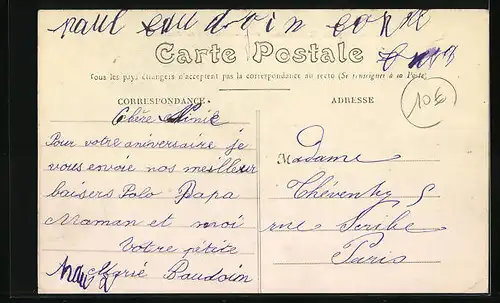 paul
Carte Postale
Tous les pays étrangers n'acceptent pas la correspondance au recto (Se renseigner à la Poste)
CORRESPONDANCE
ADRESSE
10€
Chère
Pour votre aniversaire je
vous envoie nos meilleur
baisers Polo Papa
Maman et moi
Votre petite
Marie Baudoin
Madame
Théventy 5
rue Scribe
Paris